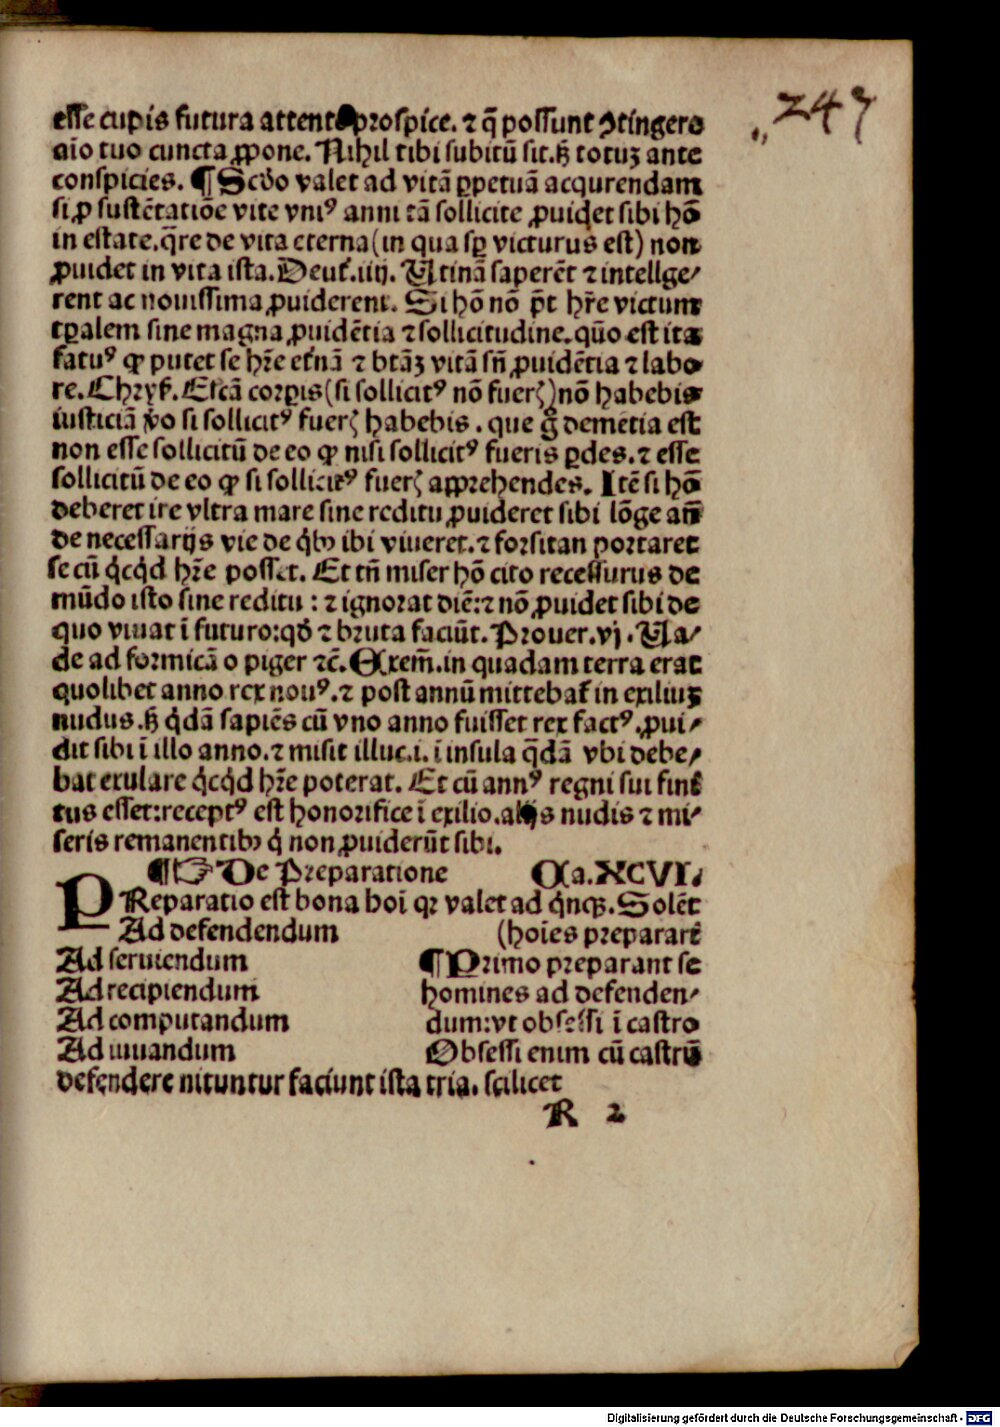 247
esse cupis futura attente prospice. ⁊ q̄ possunt ꝯtingere
aīo tuo cuncta ꝓpone. Nihil tibi subitū sit. ſꝫ totuꝫ ante
conspicies. ¶ Scd̄o valet ad vitā ꝑpetuā acqurendam
si ꝓ sustētatiōe vite vniꝰ anni tā sollicite ꝓuidet sibi hō
in estate. q̄re de vita eterna (in qua sꝑ victurus est) non
ꝓuidet in vita ista. Deut̄. iiij. Utinā saperēt ⁊ intellge⸗
rent ac nouissima ꝓuiderent. Si hō nō p̄t hr̄e victum
tꝑalem sine magna ꝓuidētia ⁊ sollicitudine. quō est ita
fatuꝰ ꝙ putet se hr̄e et̄nā ⁊ btāꝫ vitā sn̄ ꝓuidētia ⁊ labo⸗
re. Chryſ. Escā corꝑis (si sollicitꝰ nō fueꝝ) nō habebis
iusticiā v̄o si sollicitꝰ fueꝝ habebis. que g̊ demētia est
non esse sollicitū de eo ꝙ nisi sollicitꝰ fueris ꝑdes. ⁊ esse
sollicitū de eo ꝙ si sollicitꝰ fueꝝ apprehendes. Itē si hō
deberet ire vltra mare sine reditu ꝓuideret sibi lōge an̄
de necessarijs vie de q̇bꝰ ibi viueret. ⁊ forsitan portaret
se cū q̇cq̇d hr̄e posset. Et tn̄ miser hō cito recessurus de
mūdo isto sine reditu : ⁊ ignorat diē: ⁊ nō ꝓuidet sibi de
quo viuat ī futuro: qd̄ ⁊ bruta faciūt. Prouer. vj. Va⸗
de ad formicā o piger ⁊c̄. Exem̄. in quadam terra erat
quolibet anno rex nouꝰ. ⁊ post annū mittebat̄ in exiliuꝫ
nudus. ſꝫ q̇dā sapiēs cū vno anno fuisset rex factꝰ. ꝓui⸗
dit sibi ī illo anno. ⁊ misit illuc. i. ī insula q̄dā vbi debe⸗
bat exulare q̇cq̇d hr̄e poterat. Et cū annꝰ regni sui fini
tus esset: receptꝰ est honorifice ī exilio. alijs nudis ⁊ mi⸗
seris remanentibꝰ q̇ non ꝓuiderūt sibi.
¶☞ De Preparatione Ca. XCVI.
PReparatio est bona hoī qꝛ valet ad q̇nqꝫ. Solēt
Ad defendendum (hoīes preparare
Ad seruiendum ¶ Primo preparant se
Ad recipiendum homines ad defenden⸗
Ad computandum dum: vt obsessi ī castro
Ad iuuandum Obsessi enim cū castrū
defendere nituntur faciunt ista tria. scilicet
R 2
Digitalisierung gefördert durch die Deutsche Forschungsgemeinschaft - DFG